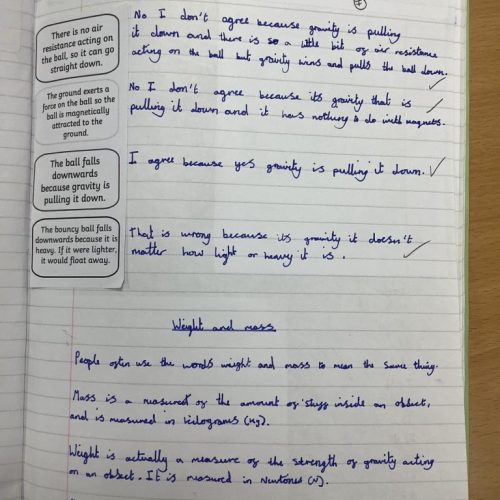 There is no air
resistance acting on
the ball, so it can go
straight down.
No I don't agree because gravity is pulling
it down and there is so a little bit of air resistance
acting on the ball but gravity wins and pulls the ball down.
The ground exerts a
force on the ball so the
ball is magnetically
attracted to the
ground.
No I don't agree because its gravity that is
pulling it down and it has nothing to do with magnets.
The ball falls
downwards
because gravity is
pulling it down.
I agree because yes gravity is pulling it down.
The bouncy ball falls
downwards because it is
heavy. If it were lighter,
it would float away.
That is wrong because its gravity it doesn't
matter how light or heavy it is.
Weight and mass
People often use the words weight and mass to mean the same thing.
Mass is a measured of the amount of 'stuff' inside an object,
and is measured in kilograms (kg).
Weight is actually a measure of the strength of gravity acting
on an object. It is measured in Newtons (N).